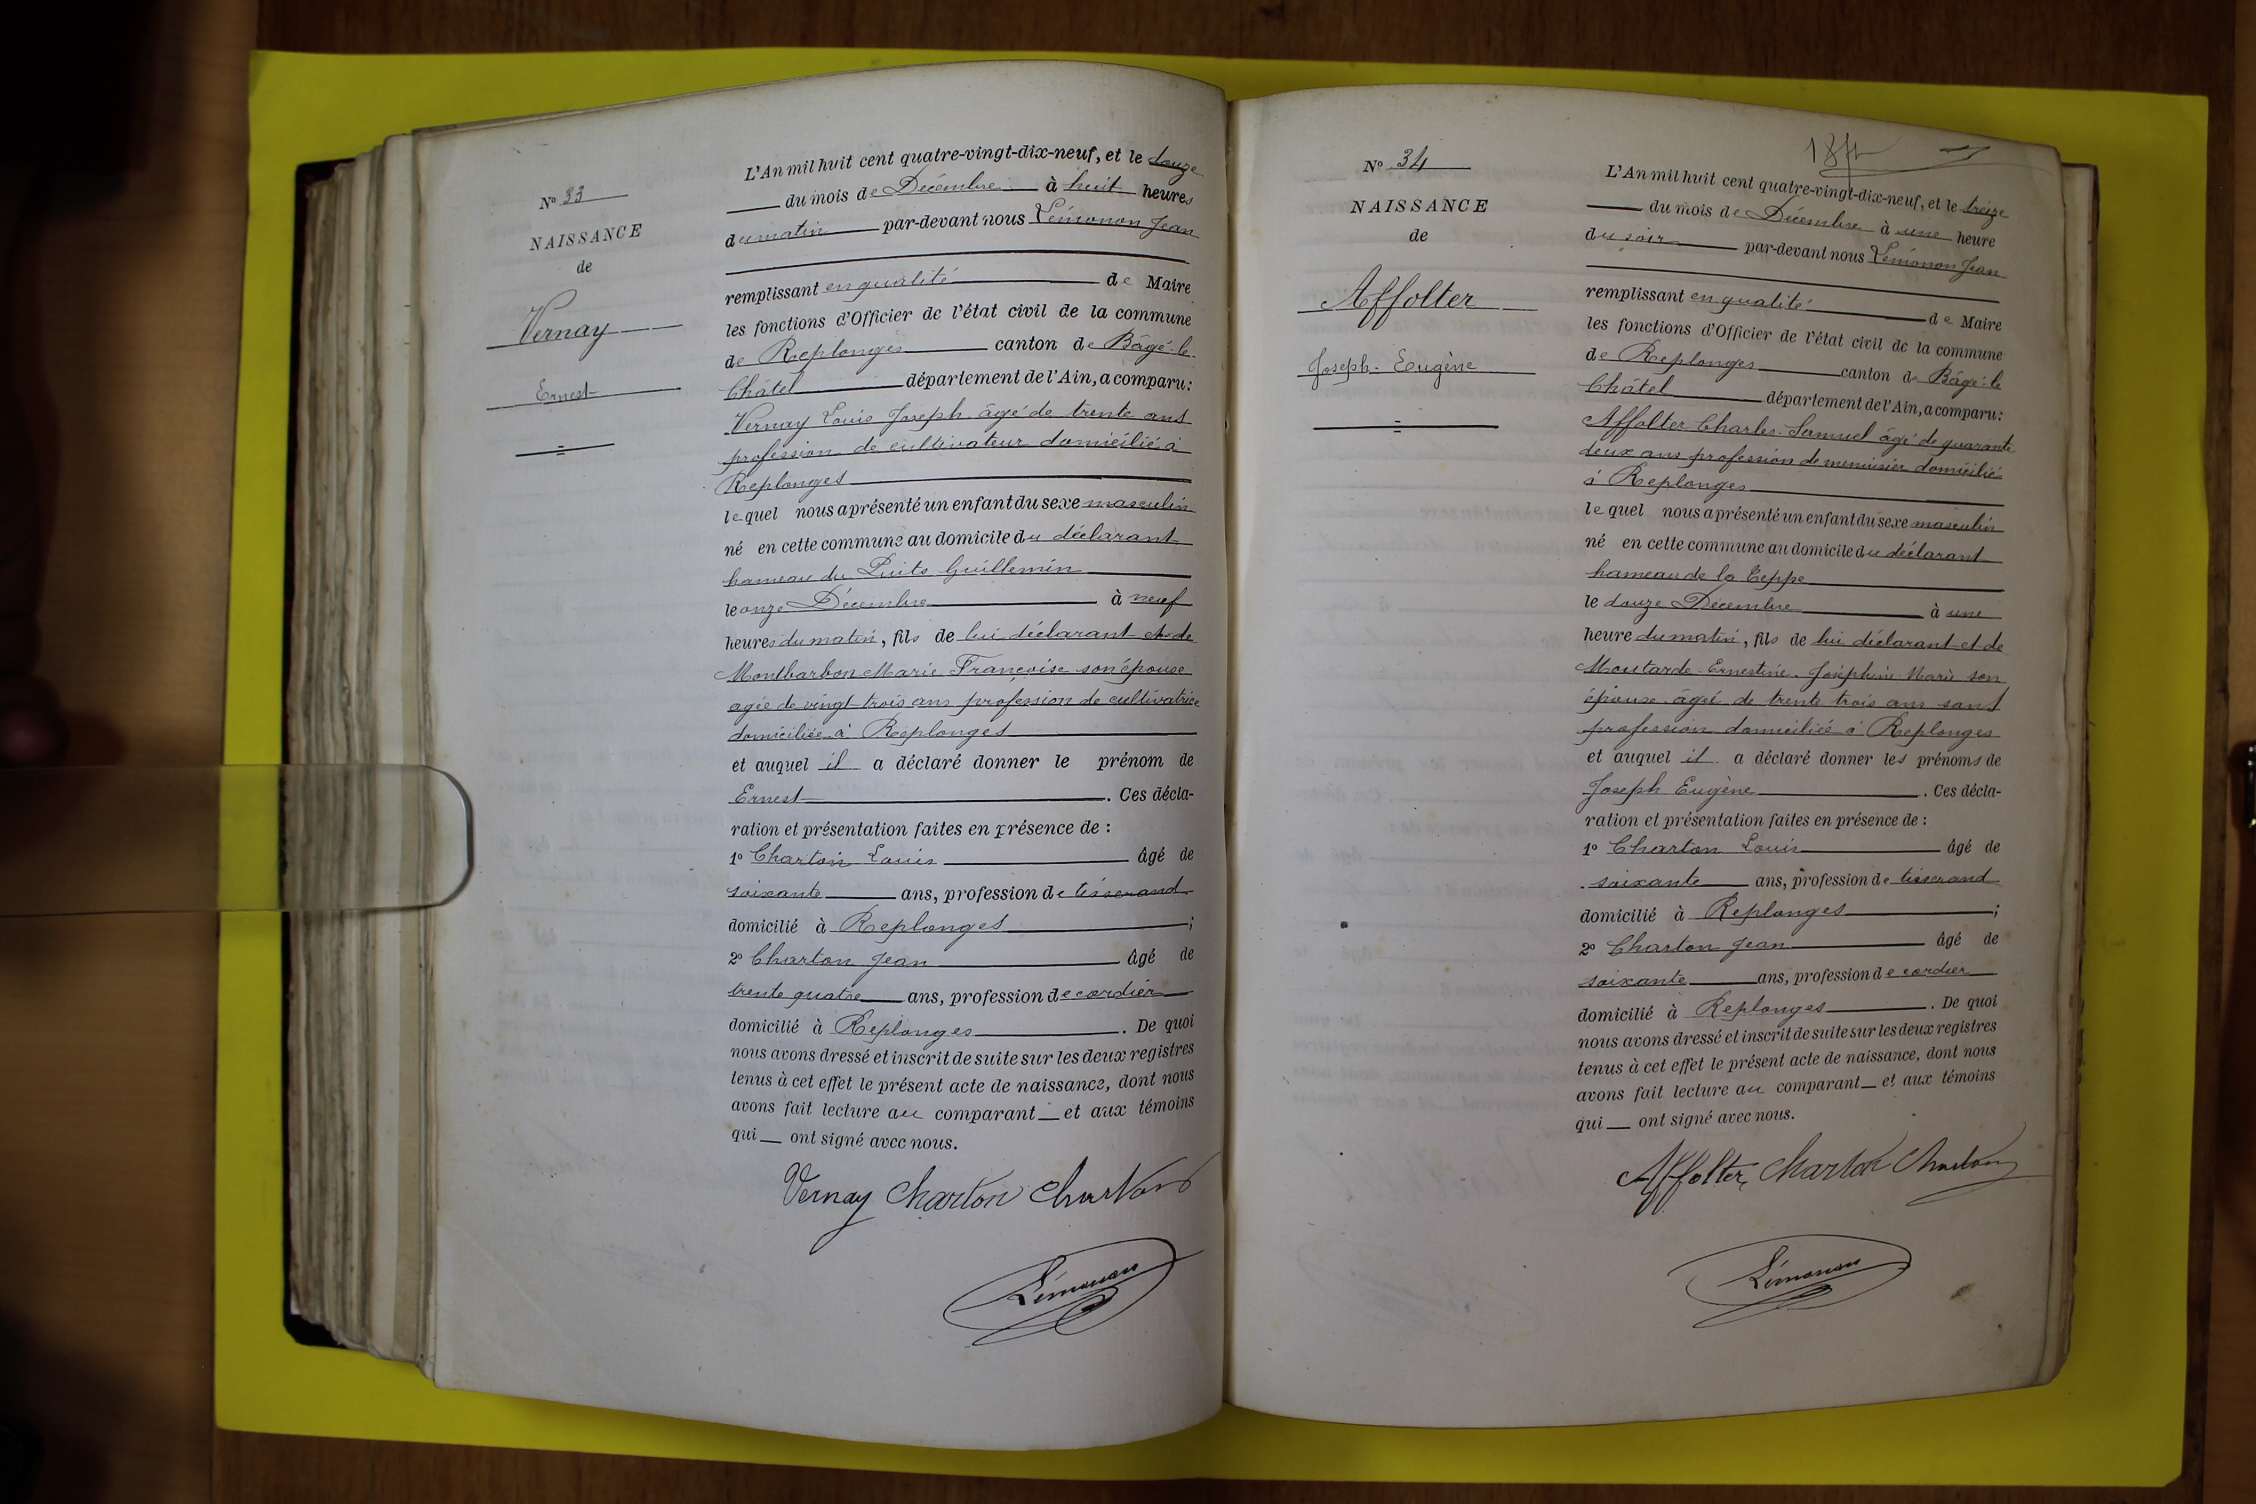 N° 33
NAISSANCE
de
Vernay
Ernest
L'An mil huit cent quatre-vingt-dix-neuf, et le douze
du mois de Décembre à huit heures
du matin par-devant nous Lémonon Jean
remplissant en qualité de Maire
les fonctions d'Officier de l'état civil de la commune
de Replonges canton de Bâgé-le-
Châtel département de l'Ain, a comparu:
Vernay Louis Joseph âgé de trente ans
profession de cultivateur domicilié à
Replonges
lequel nous a présenté un enfant du sexe masculin
né en cette commune au domicile du déclarant
hameau du Puits Guillemin
le onze Décembre à neuf
heures du matin, fils de lui déclarant et de
Montbarbon Marie Françoise son épouse
agée de vingt trois ans profession de cultivatrice
domiciliée à Replonges
et auquel il a déclaré donner le prénom de
Ernest. Ces décla-
ration et présentation faites en présence de :
1° Charton Louis âgé de
soixante ans, profession de tisserand
domicilié à Replonges;
2° Charton Jean âgé de
trente quatre ans, profession de cordier
domicilié à Replonges. De quoi
nous avons dressé et inscrit de suite sur les deux registres
tenus à cet effet le présent acte de naissance, dont nous
avons fait lecture au comparant et aux témoins
qui ont signé avec nous.
Vernay Charton Charton
Lémonon
N° 34
NAISSANCE
de
Affolter
Joseph-Eugène
L'An mil huit cent quatre-vingt-dix-neuf, et le treize
du mois de Décembre à une heure
du soir par-devant nous Lémonon Jean
remplissant en qualité de Maire
les fonctions d'Officier de l'état civil de la commune
de Replonges canton de Bâgé-le
Châtel département de l'Ain, a comparu:
Affolter Charles-Samuel âgé de quarante
deux ans profession de menuisier domicilié
à Replonges
lequel nous a présenté un enfant du sexe masculin
né en cette commune au domicile du déclarant
hameau de la Teppe
le douze Décembre à une
heure du matin, fils de lui déclarant et de
Moutarde Ernestine Joséphine Marie son
épouse âgée de trente trois ans sans
profession domiciliée à Replonges
et auquel il a déclaré donner les prénoms de
Joseph Eugène. Ces décla-
ration et présentation faites en présence de :
1° Charton Louis âgé de
soixante ans, profession de tisserand
domicilié à Replonges;
2° Charton Jean âgé de
soixante ans, profession de cordier
domicilié à Replonges. De quoi
nous avons dressé et inscrit de suite sur les deux registres
tenus à cet effet le présent acte de naissance, dont nous
avons fait lecture au comparant et aux témoins
qui ont signé avec nous.
Affolter Charton Charton
Lémonon